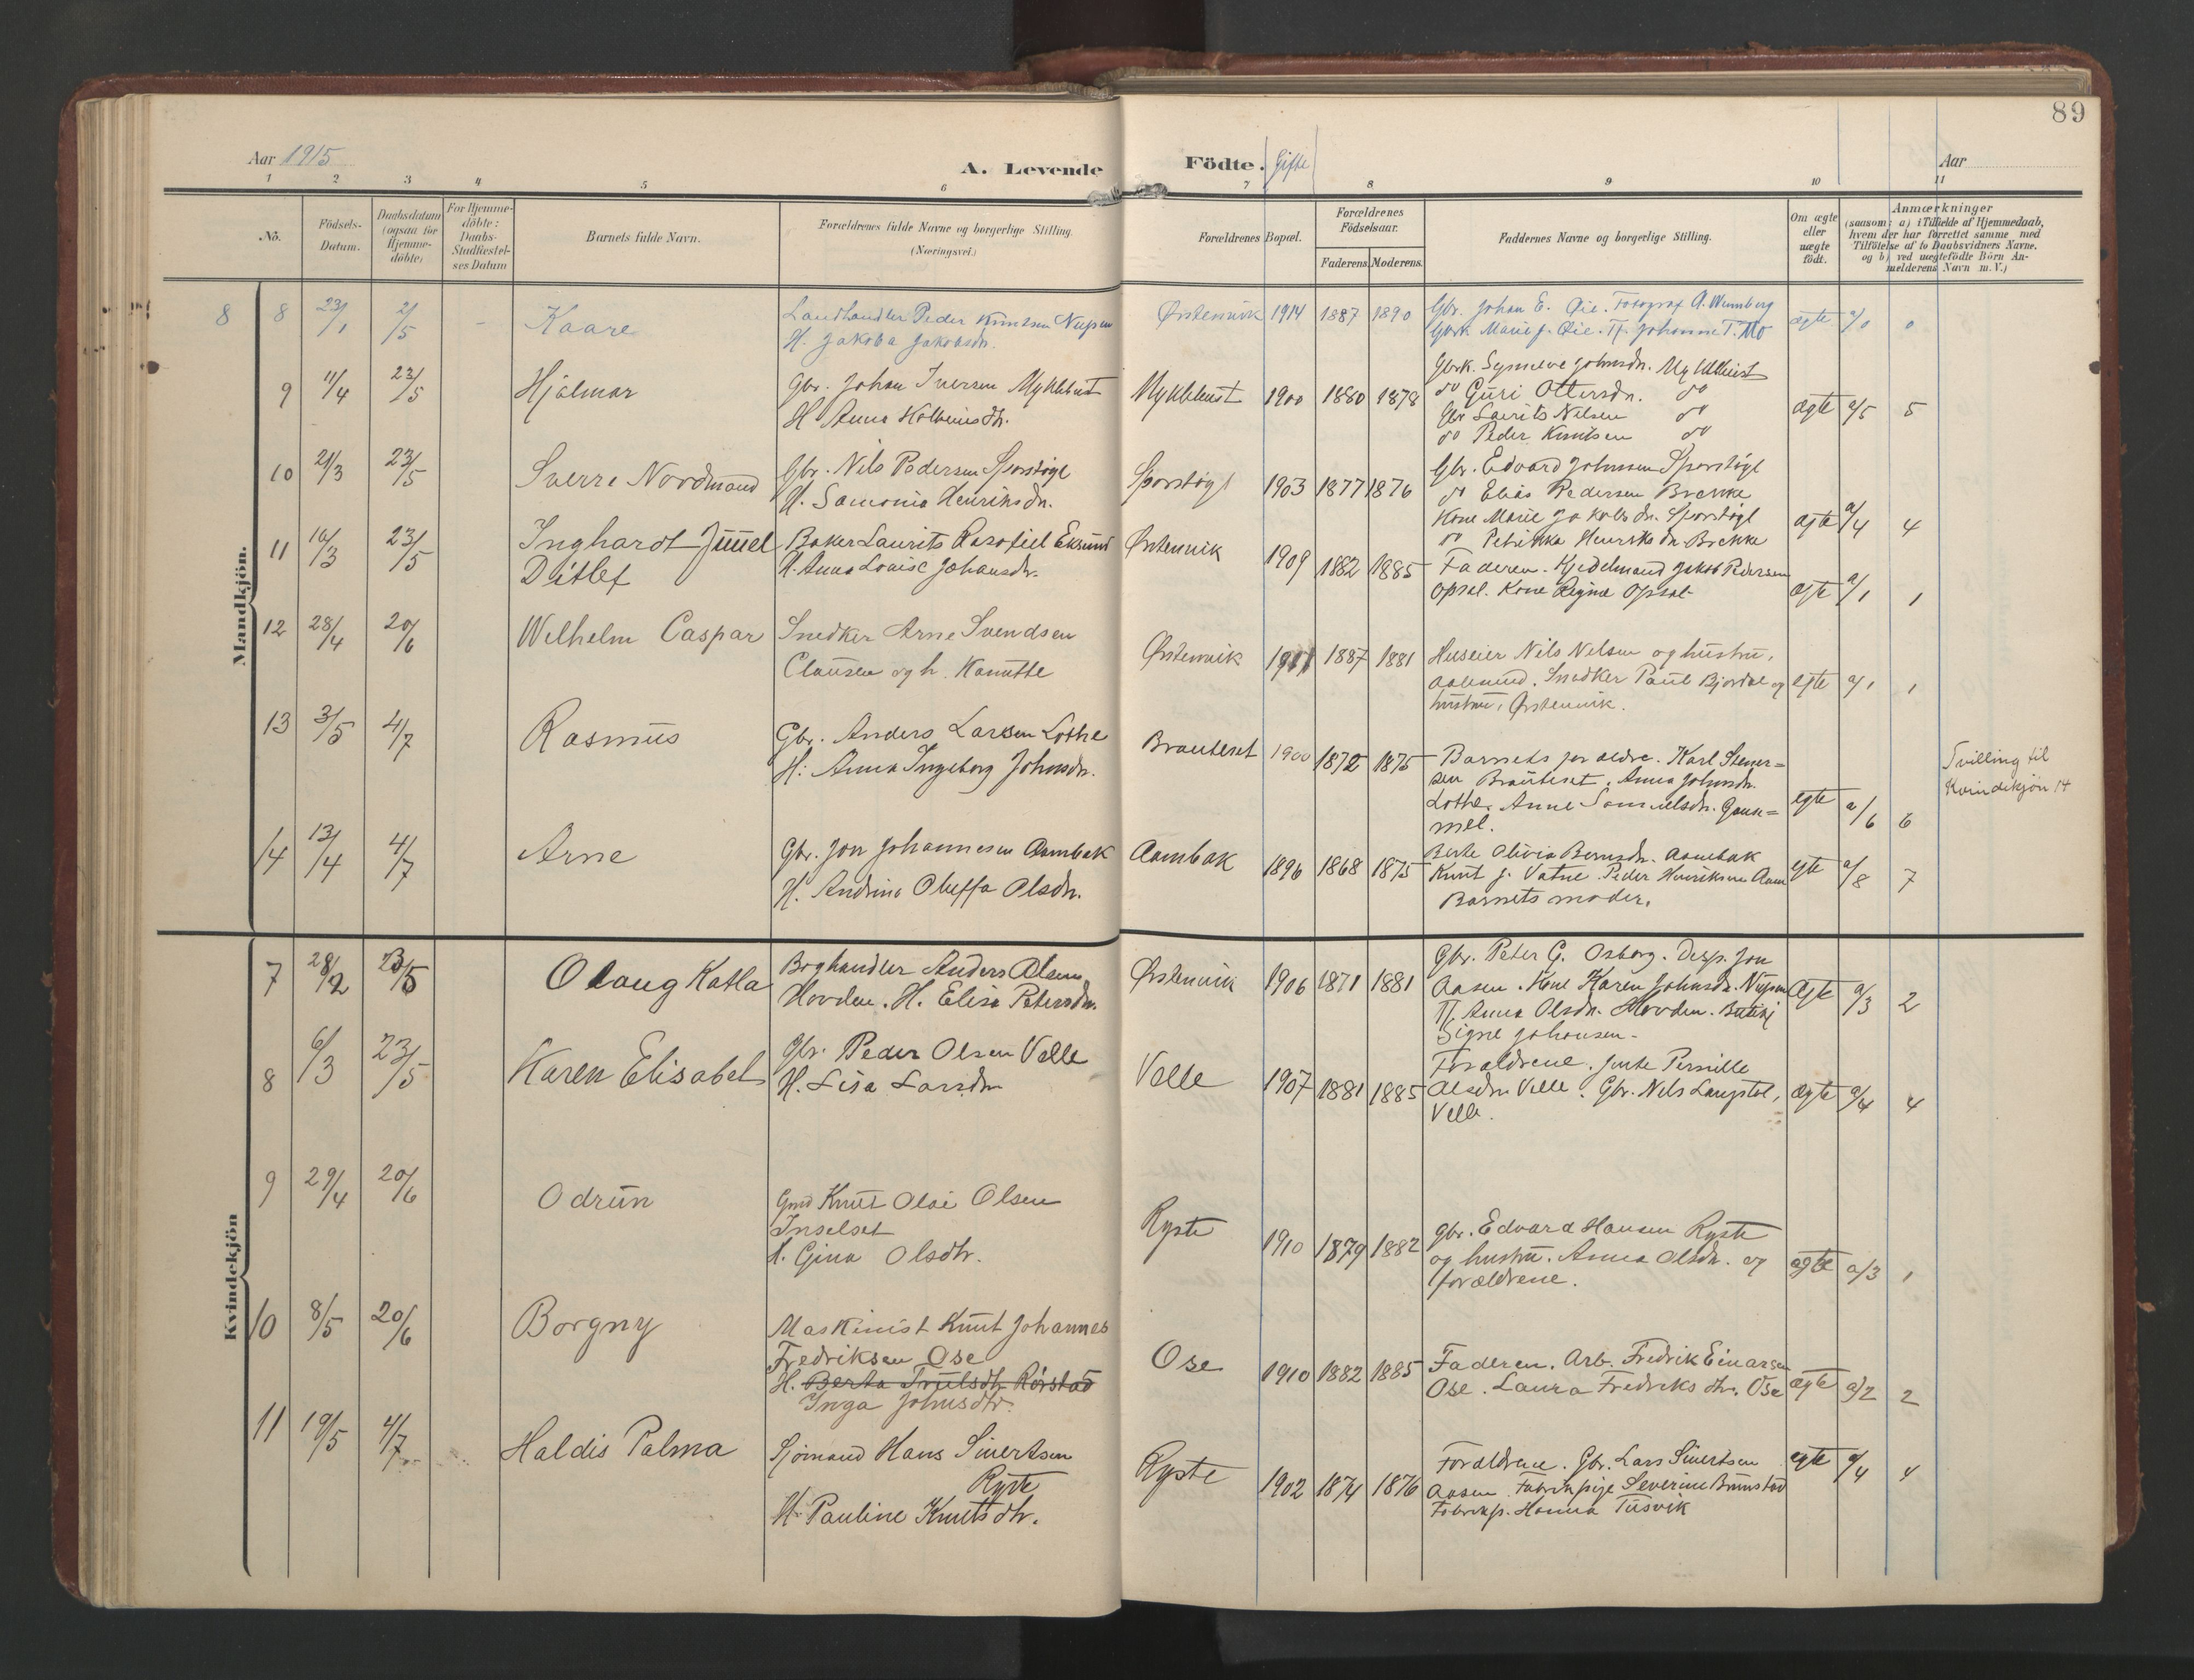 89
Aar 1915
A. Levende Födte. Gifte
Aar
1 2 3 4 5 6 7 8 9 10 11
No.
Födsels-
Datum.
Daabsdatum
(ogsaa for
Hjemme-
döbte)
For Hjemme-
döbte:
Daabs-
Stadfæstel-
ses Datum
Barnets fulde Navn.
Forældrenes fulde Navne og borgerlige Stilling.
(Næringsvei.)
Forældrenes Bopæl.
Forældrenes
Födselsaar.
Faderens. Moderens.
Faddernes Navne og borgerlige Stilling.
Om ægte
eller
uægte
födt.
Anmærkninger
(saasom: a) i Tilfælde af Hjemmedaab,
hvem der har forrettet samme med
Tilföielse af to Daabsvidners Navne.
og b) ved uægtefödte Börn An-
melderens Navn m. V.)
Mandkjön.
8 8 23/1 2/5 - Kaare
Landhandler Peder Knutsen Nupen
H. Jakoba Jakobsdr.
Ørstenvik 1914 1887 1890
Gbr. Johan E. Øie. Fotograf A. Wumberg
Gbrk. Marie J. Øie. Pi. Johanne T. Mo
ægte a/0 0
9 11/4 23/5 Hjalmar
Gbr. Johan Iversen Myklebust
H. Anna Kolbeinsdtr.
Myklebust 1900 1880 1878
Gbrk. Synneve Johnsdn. Myklebust
do Guri Ottersdn. do
Gbr Laurits Nilsen do
do Peder Knutsen do
ægte a/5 5
10 21/3 23/5 Sverre Nordmand
Gbr. Nils Pedersen Sporstøyl
H. Samonia Henriksdn.
Sporstøyl 1903 1877 1876
Gbr. Edvard Johnsen Sporstøyl
do Elias Pedersen Brekke
Kone Marie Jakobsdn. Sporstøyl
do Petrikka Henriksdn Brekke
ægte a/4 4
11 16/3 23/5 Inghardt Juuel
Ditlef
Baker Laurits Rasofiel Eksund
H. Anna Louise Johansdr.
Ørstenvik 1909 1882 1885
Faderen. Kjedelmand Jakob Pedersen
Opsal. Kone Regine Opsal
ægte a/1 1
12 28/4 20/6 Wilhelm Caspar
Snedker Arne Svendsen
Clausen og h. Kanutte
Ørstenvik 1911 1887 1881
Huseier Nils Nilsen og hustru,
Aalesund. Snedker Paul Bjordal og
hustru, Ørstenvik.
egte a/1 1
13 3/5 4/7 Rasmus
Gbr. Anders Larsen Lothe
H: Anna Ingeborg Johnsdr.
Brauteset 1900 1872 1875
Barnets foraeldre. Karl Stener=
sen Brauteset. Anna Johnsdr.
Lothe. Anne Samuelsdr.
mel.
egte a/6 6
Tvilling til
Kvindekjön 14
14 13/4 4/7 Arne
Gbr. Jon Johannesen Aambak
H. Andrina Oluffa Olsdr.
Aambak 1896 1868 1875
Berte Olivia Berusdr. Aambak
Knut J. Vatne. Peder Henriksen Aam
Barnets moder.
egte a/8 7
Kvindekjön
7 28/2 23/5 Olaug Katla
Boghandler Anders Olsen
Hovden. H. Elise Petersdn.
Ørstenvik 1906 1871 1881
Gbr. Peter G. Osborg. Desp. Jon
Aasen. Kone Karen Johnsdr. Nupen
Pi. Anna Olsdn. Hovden. Butikj
Signe Johansen.
Ægte a/3 2
8 6/3 23/5 Karen Elisabet
Gbr. Peder Olsen Velle
H. Lisa Larsdn
Velle 1907 1881 1885
Foraldrene. Jente Pernille
Olsdn. Velle. Gbr. Nils Langstøl,
Velle.
ægte a/4 4
9 29/4 20/6 Odrun
Gmd Knut Olai Olsen
Inselset
H. Gina Olsdtr.
Ryste 1910 1879 1882
Gbr. Edvard Hansen Ryste
og hustru. Anna Olsdn. og
forældrene.
ægte a/3 1
10 8/5 20/6 Borgny
Maskinist Knut Johannes
Fredriksen Ose
H. Berta Trulsdtr Rörstad
Inga Johnsdtr.
Ose 1910 1882 1885
Faderen. Arb. Fredrik Einarsen
Ose. Laura Fredriksdtr. Ose
ægte a/2 2
11 19/5 4/7 Haldis Palma
Sjömand Hans Sivertsen
Ryste
H. Pauline Knutsdtr.
Ryste 1902 1874 1876
Foraldrene. Gbr. Lars Sivertsen
Aasen. Fabrikpige Severine Brunstad
Fabrikp. Hanna Tusvik
egte a/4 4